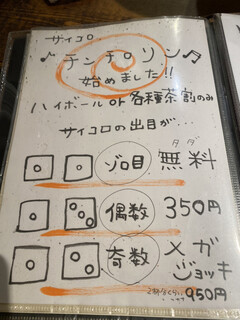 サイコロ
♪チンチロリン♬
始めました!!
ハイボール or 各種茶割のみ
サイコロの出目が…
ゾロ目 無料
タダ
偶数 350円
奇数 メガ
ジョッキ
950円